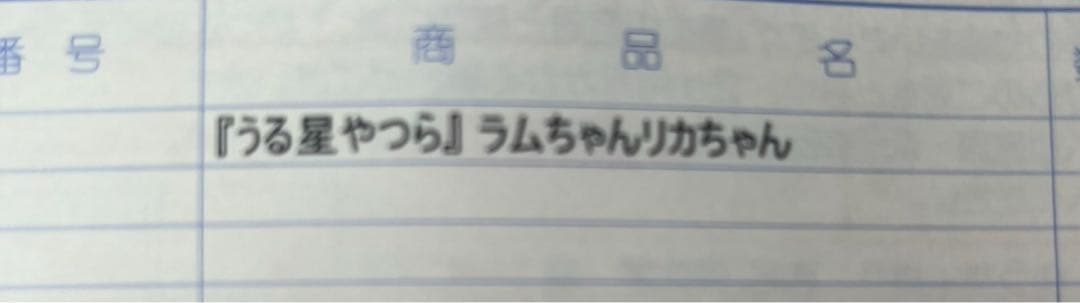 番号 商品名
『うる星やつら』ラムちゃんリカちゃん